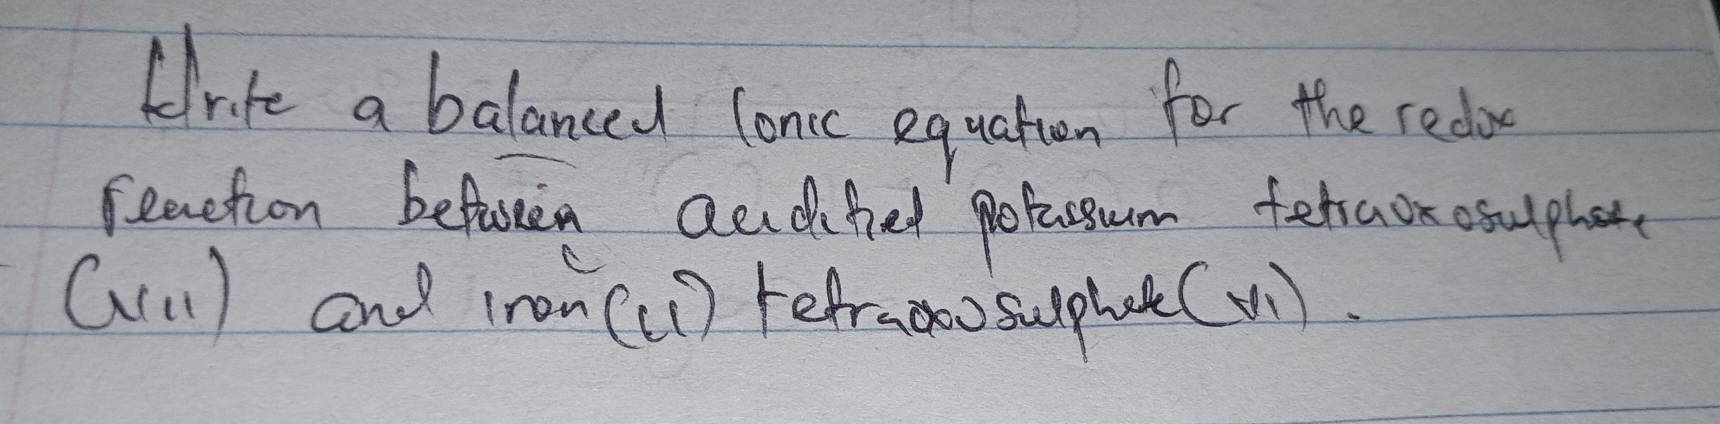 Write a balanced ionic equation for the redox
reaction between acidified potassium tetraoxosulphate
(VII) and iron(II) tetraoxosulphate(VI).